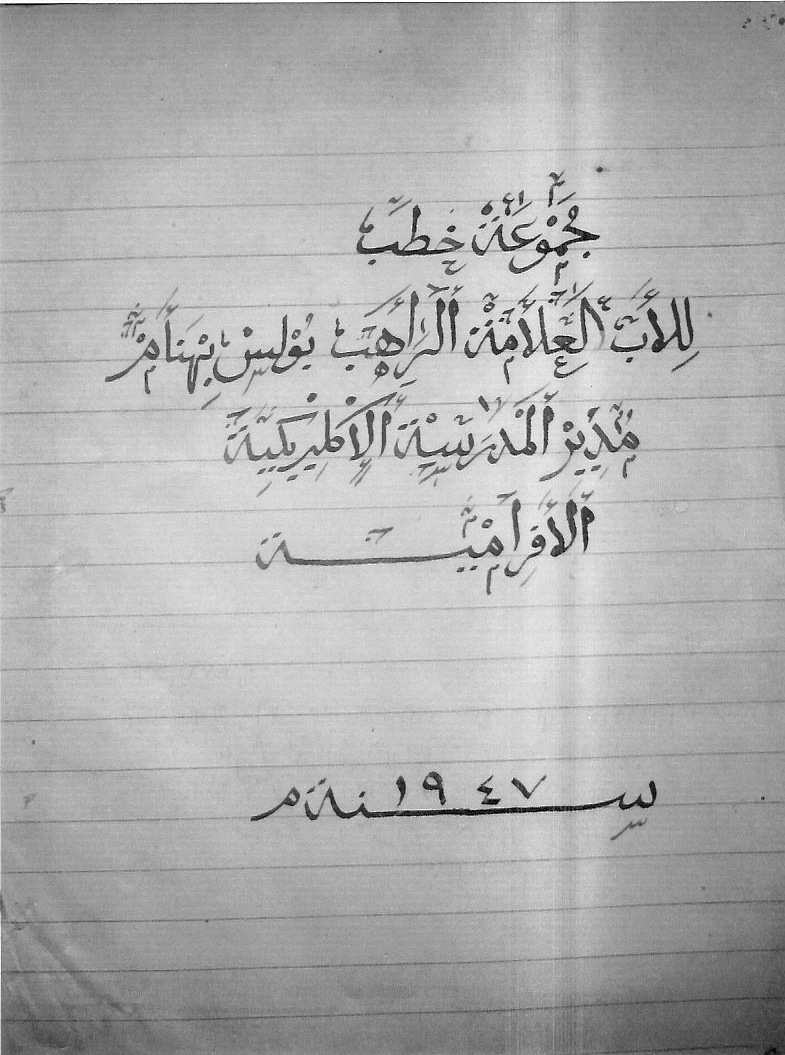 مجموعة خطب
للأب العلامة الراهب بولس بهنام
مدير المدرسة الإكليريكية
الأفرامية
سنة ١٩٤٧ م